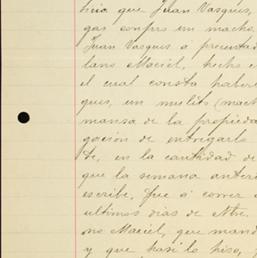 hico que Juan Vasques,
gas compro un macho,
Juan Vasques a presentad
lano Maciel, hecho e
el cual consta haber
ques, un mulito (mach
mansa de la propieda
gacion de entregarlo
te, en la cantidad de
que la semana anteri
escribe. Que á correr
ultimos dias de Nbre.
no Maciel, que mand
y que hasi lo hiso,